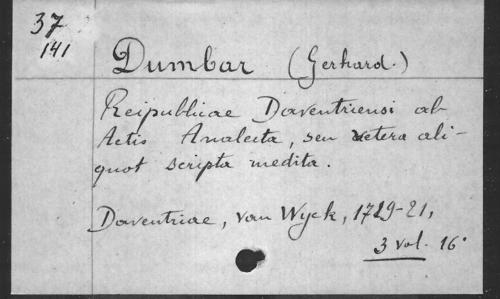 37
141
Dumbar (Gerhard.)
Reipublicae Daventriensi ab
Actis Analecta, seu vetera ali-
quot scripta inedita.
Daventriae, van Wyck, 1719-21,
3 vol. 16°